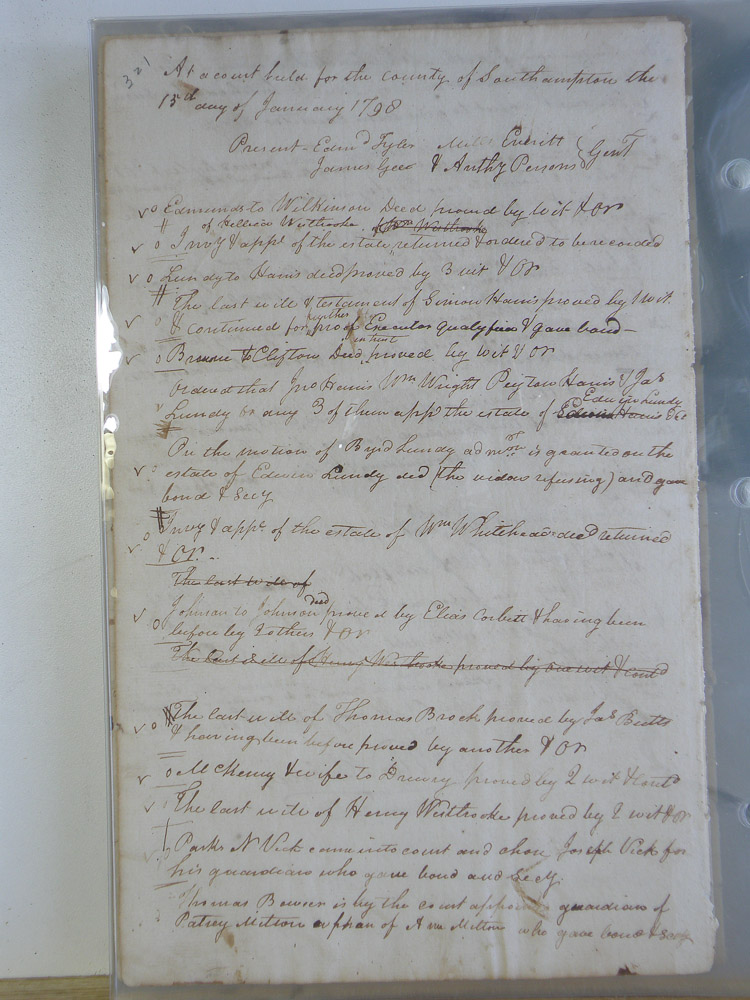 321
At a court held for the county of Southampton the
15th day of January 1798
Present - Edmd Tyler Mills Everitt
James Gee & Anthy Persons } Gent
Edmunds to Wilkinson Deed proved by wit & Or
of Westbrooke
Invy & appt of the estate returned & ordered to be recorded
Lundy to Harris deed proved by 3 wit & Or
The last will & testament of Simon Harris proved by 1 wit
& continued for further proof Executor qualyfied & gave bond -
Browne to Clifton Deed in trust proved by wit & Or
Ordered that Jno Harris Wm Wright Peyton Harris & Jas
Edwin Lundy
Lundy or any 3 of them app the estate of Edwin Harris
On the motion of Byrd Lundy admon is granted on the
estate of Edwin Lundy ded (the widow refusing) and gave
bond & Secy
Invy & appt of the estate of Wm Whitehead deed returned
& Or. -
The last will of
Johnson to Johnson deed proved by Elias Corbitt & having been
before by 2 others & Or
The last will of Henry Westbrooke proved by one wit & contd
The last will of Thomas Brock proved by Jas Butts
& having been before proved by another & Or
McKenny & wife to Drewry proved by 2 wit & contd
The last will of Henry Westbrooke proved by 2 wit & Or
Parks N Vick came into court and chose Joseph Vick for
his guardian who gave bond and Secy.
Thomas Bowers is by the court appointed guardian of
Patsey Milton orphan of Ann Milton who gave bond & Secy